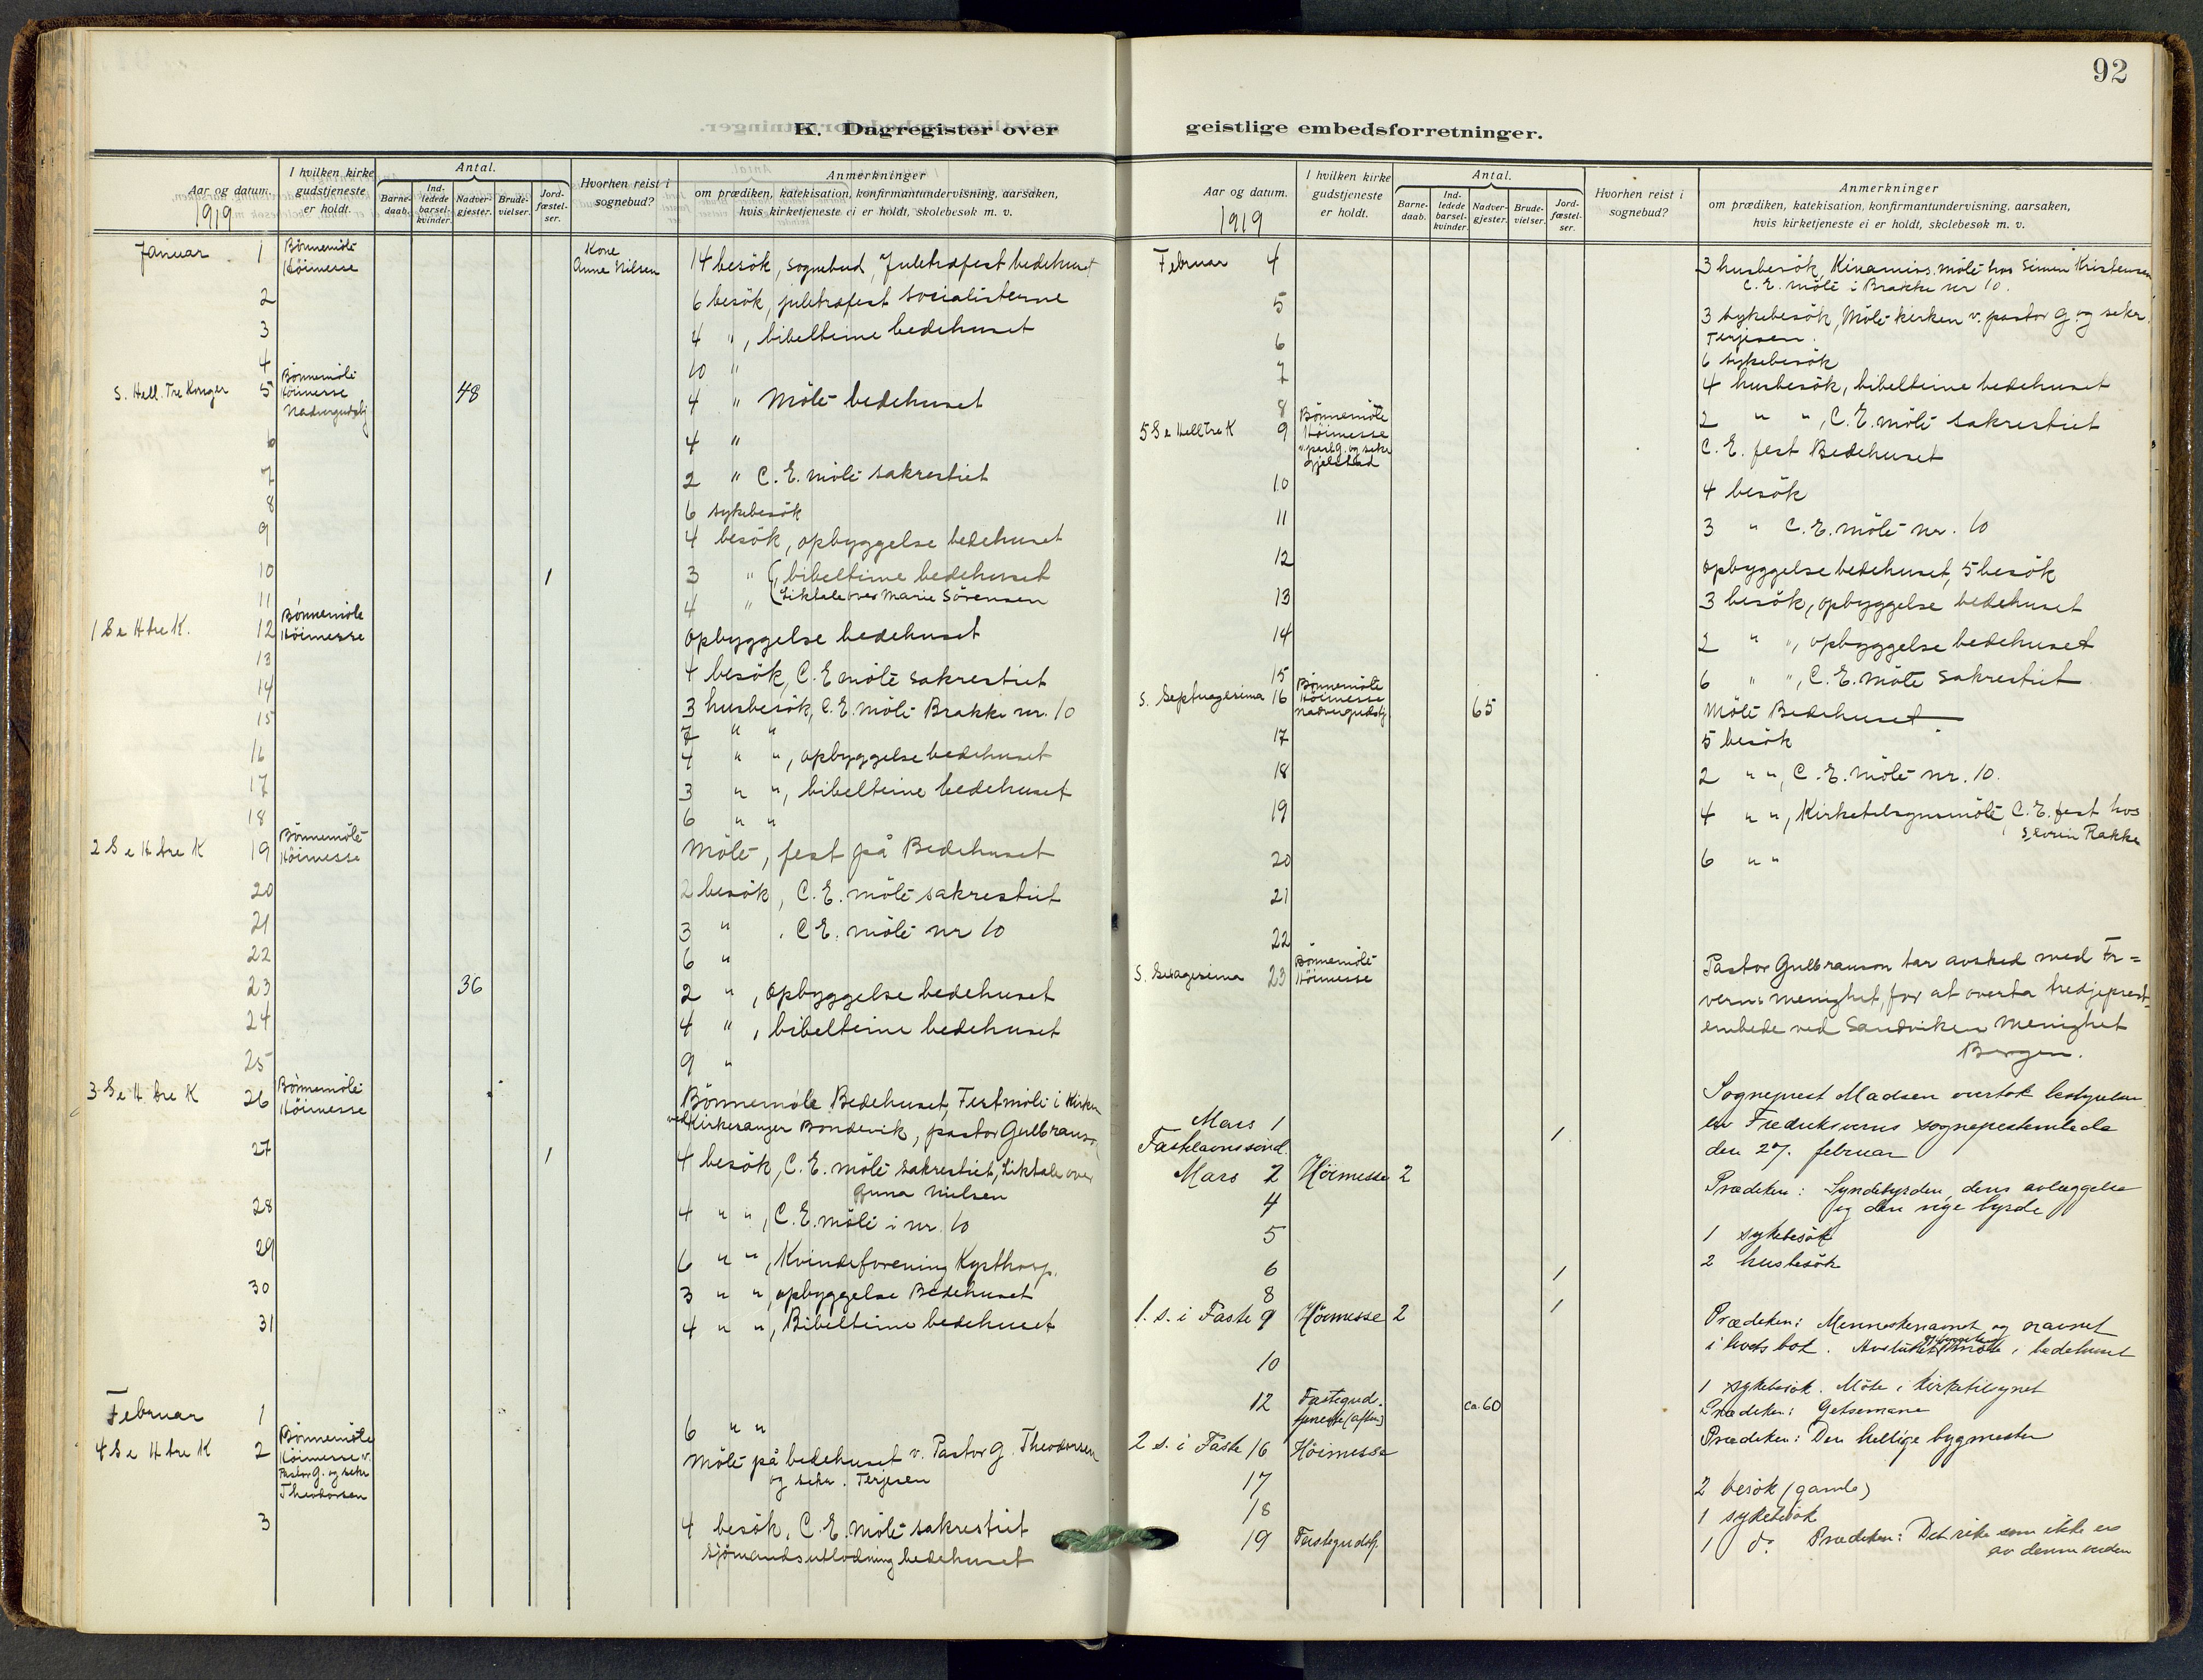 92
K. Dagregister over geistlige embedsforretninger.
Aar og datum. 1919
I hvilken kirke gudstjeneste er holdt.
Antal.
Barne-daab. Ind-ledede barsel-kvinder. Nadver-gjester. Brude-vielser. Jord-fæstel-ser.
Hvorhen reist i sognebud?
Anmerkninger
om prædiken, katekisation, konfirmantundervisning, aarsaken,
hvis kirketjeneste ei er holdt, skolebesøk m. v.
Januar 1 Bönnemöte Höimesse Kone Anne Nilsen 14 besök, sognebud, Juletræfest bedehuset
2 6 besök, juletræfest socialisterne
3 4 ", bibeltime bedehuset
4 10 "
S. Hell. Tre Konger 5 Bönnemöte Höimesse Nadvergudstj 48 4 " Möte bedehuset
6 4 "
7 2 " C. E. möte sakrestiet
8 6 sykebesök
9 4 besök, opbyggelse bedehuset
10 1 3 ", bibeltime bedehuset
11 4 " Liktale over Marie Sörensen
1 S e H tre K. 12 Bönnemöte Höimesse opbyggelse bedehuset
13 4 besök, C. E möte sakrestiet
14 3 husbesök, C. E. möte Brakke nr. 10
15 7 " "
16 4 " ", opbyggelse bedehuset
17 3 " ", bibeltime bedehuset
18 6 " "
2 S e H tre K 19 Bönnemöte Höimesse Möte, fest på Bedehuset
20 2 besök, C. E. möte sakrestiet
21 3 " . C E. möte nr 10
22 6 "
23 36 2 ", opbyggelse bedehuset
24 4 ", bibeltime bedehuset
25 9 "
3 S e H tre K 26 Bönnemöte Höimesse Bönnemöte Bedehuset, Festmöte i Kirken
ved Kirkesanger Bondevik, pastor Gulbranson
27 1 4 besök, C. E. möte sakrestiet, Liktale over
Gunna Nielsen
28 4 " ", C. E. möte i nr. 10
29 6 " ", Kvindeforening Kysthosp.
30 3 " ", opbyggelse Bedehuset
31 4 " ", Bibeltime bedehuset
Februar 1 6 " "
4 S e H tre K 2 Bönnemöte Höimesse v. Pastor G. og sekr Theodorsen Möte på bedehuset v. Pastor G. Theodorsen
og sekr. Terjesen
3 4 besök, C. E. möte sakrestiet
Sjömandsutlodning bedehuset
geistlige embedsforretninger.
Aar og datum. 1919
I hvilken kirke gudstjeneste er holdt.
Antal.
Barne-daab. Ind-ledede barsel-kvinder. Nadver-gjester. Brude-vielser. Jord-fæstel-ser.
Hvorhen reist i sognebud?
Anmerkninger
om prædiken, katekisation, konfirmantundervisning, aarsaken,
hvis kirketjeneste ei er holdt, skolebesøk m. v.
Februar 4 3 husbesök, Kinamiss. möte hos Simen Kristensen
C. E. möte i Brakke nr 10.
5 3 sykebesök, Möte kirken v. pastor G og sekr.
Terjesen.
6 6 sykebesök
7 4 husbesök, bibeltime bedehuset
8 2 " ", C. E. möte sakrestiet
5 S e Hell Tre K 9 Bönnemöte Höimesse v. past G. og sekr Gjelstad C. E. fest Bedehuset
10 4 besök
11 3 " C. E. möte nr. 10
12 opbyggelse bedehuset, 5 besök
13 3 besök, opbyggelse bedehuset
14 2 " ", opbyggelse bedehuset
15 6 " ", C. E. möte sakrestiet
S. Septuagesima 16 Bönnemöte Höimesse Nadvergudstj. 65 Möte Bedehuset
17 5 besök
18 2 " ", C. E. möte nr. 10.
19 4 " ", Kirketilsynsmöte, C. E. fest hos
Severin Rakke
20 6 " "
21
22
S. Sexagesima 23 Bönnemöte Höimesse Pastor Gulbranson tar avsked med Fr=
verns menighet, for at overta tredjeprest=
embede ved Sandviken menighet
Bergen.
Sogneprest Madsen overtok bestyrelsen
av Fredriksverns sogneprestembede
den 27. februar
Mars 1 1
Fastelavnssönd.
Mars 2 Höimesse 2 Prædiken: Syndebyrden, dens avlæggelse
og den nye byrde
4 1 sykebesök
5 2 husbesök
6 1
8 1
1. s. i Faste 9 Höimesse 2 Prædiken: Menneskenavnet og navnet
i livets bok. Avsluttet möte i bedehuset
10 1 sykebesök. Möte i kirketilsynet
12 Fastegudstjeneste (aften) ca. 60 Prædiken: Getsemane
2 s. i Faste 16 Höimesse Prædiken: Den hellige bygmester
17 2 besök (gamle)
18 1 sykebesök
19 Fastegudstj. 1 do. Prædiken: Det rike som ikke er
av denne verden